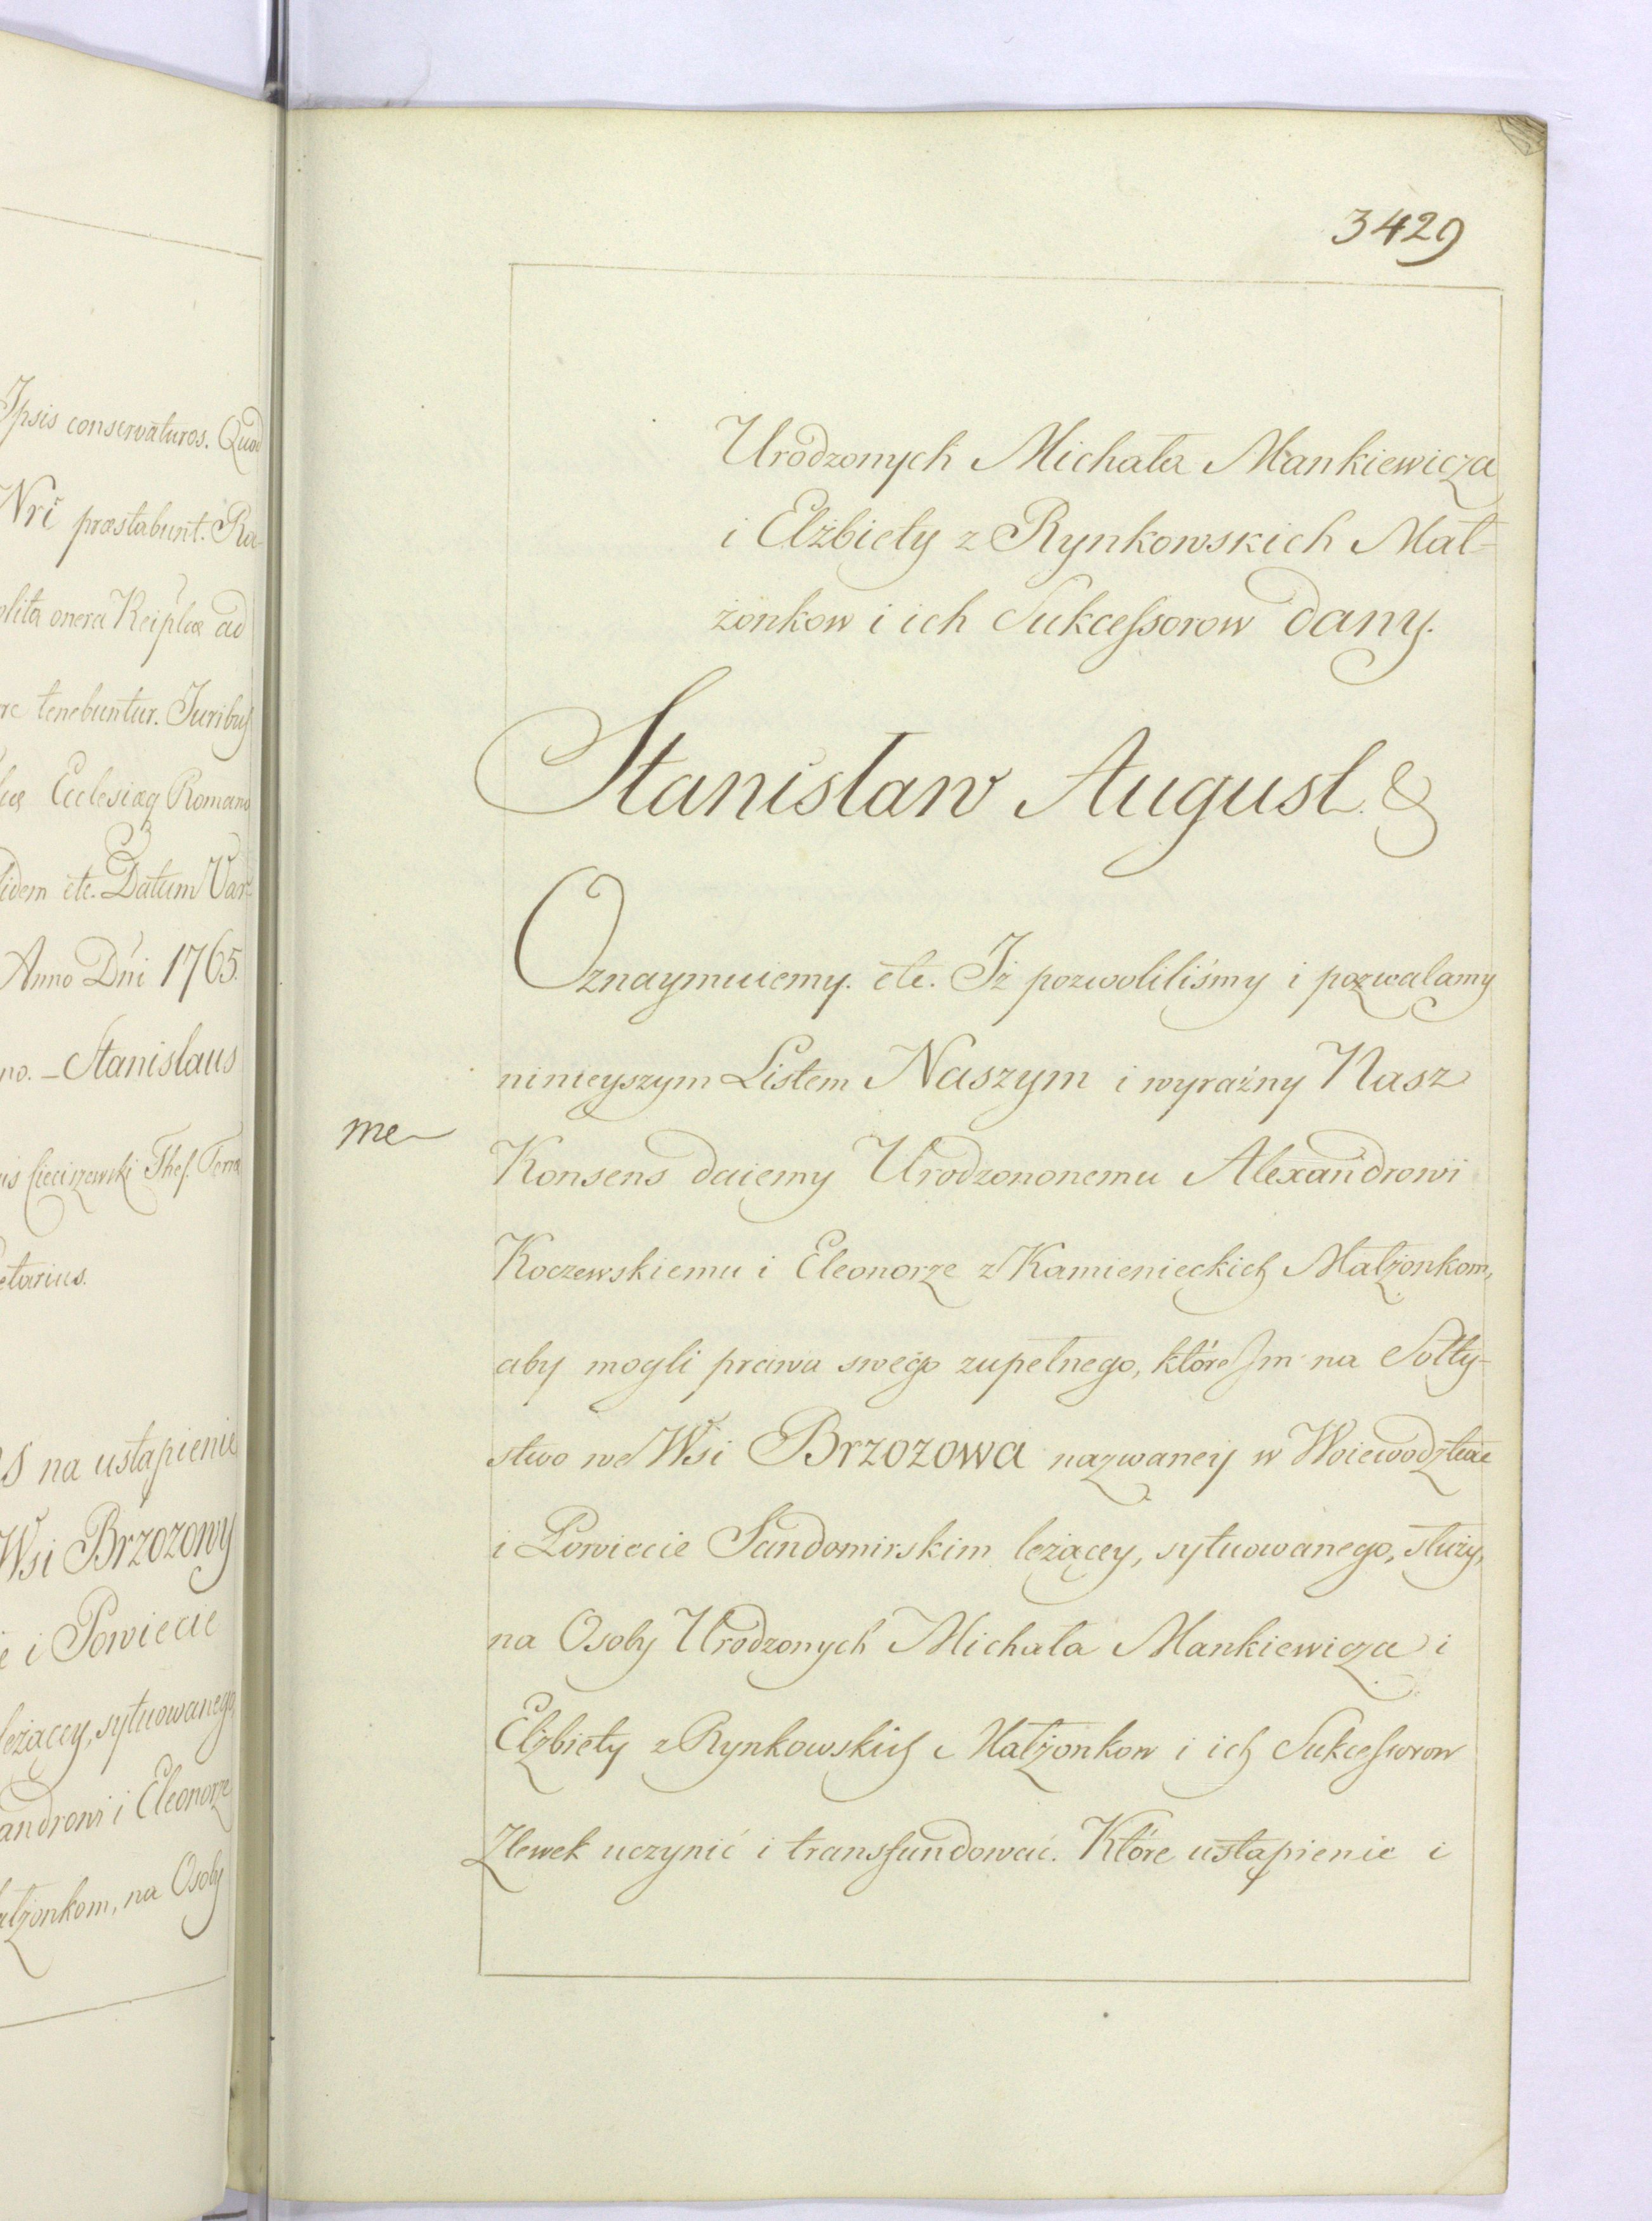 Ipsis conservaturos. Quod
Nri præstabunt. Ra-
onera Reiplcæ ad
tenebuntur. Juribus
Ecclesiæq Romana
etc. Datum Var-
Anno Dńi 1765.
Stanislaus
Cieciszewski Thes. Terræ
na ustąpienie
Wsi Brzozowy
i Powiecie
leżącey, sytuowanego
i Eleonorze
na Osoby
3429
Urodzonych Michała Mankiewicza
i Elżbiety z Rynkowskich Mał-
żonkow i ich Sukcessorow dany.
Stanisław August &
Oznaymuiemy. etc. Iż pozwoliliśmy i pozwalamy
ninieyszym Listem Naszym i wyraźny Nasz
me
Konsens daiemy Urodzononemu Alexandrowi
Koczewskiemu i Eleonorze z Kamienieckich Małżonkom,
aby mogli prawa swego zupełnego, które Im na Sołty-
stwo we Wsi Brzozowa nazwaney w Woiewodztwie
i Powiecie Sandomirskim leżącey, sytuowanego, służy,
na Osoby Urodzonych Michała Mankiewicza i
Elżbiety z Rynkowskich Małżonkow i ich Sukcessorow
Zlewek uczynić i transfundować. Które ustąpienie i